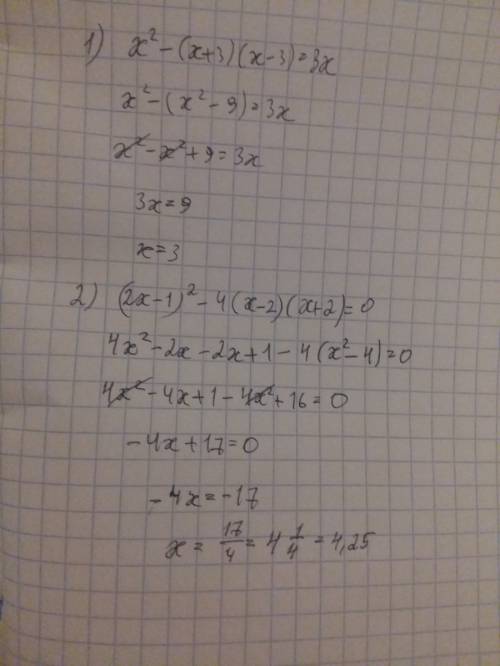 1) x² - (x+3)(x-3) = 3x
x² - (x² - 9) = 3x
x² - x² + 9 = 3x
3x = 9
x = 3
2) (2x-1)² - 4(x-2)(x+2) = 0
4x² - 2x - 2x + 1 - 4(x² - 4) = 0
4x² - 4x + 1 - 4x² + 16 = 0
- 4x + 17 = 0
- 4x = -17
x = 17/4 = 4 1/4 = 4,25